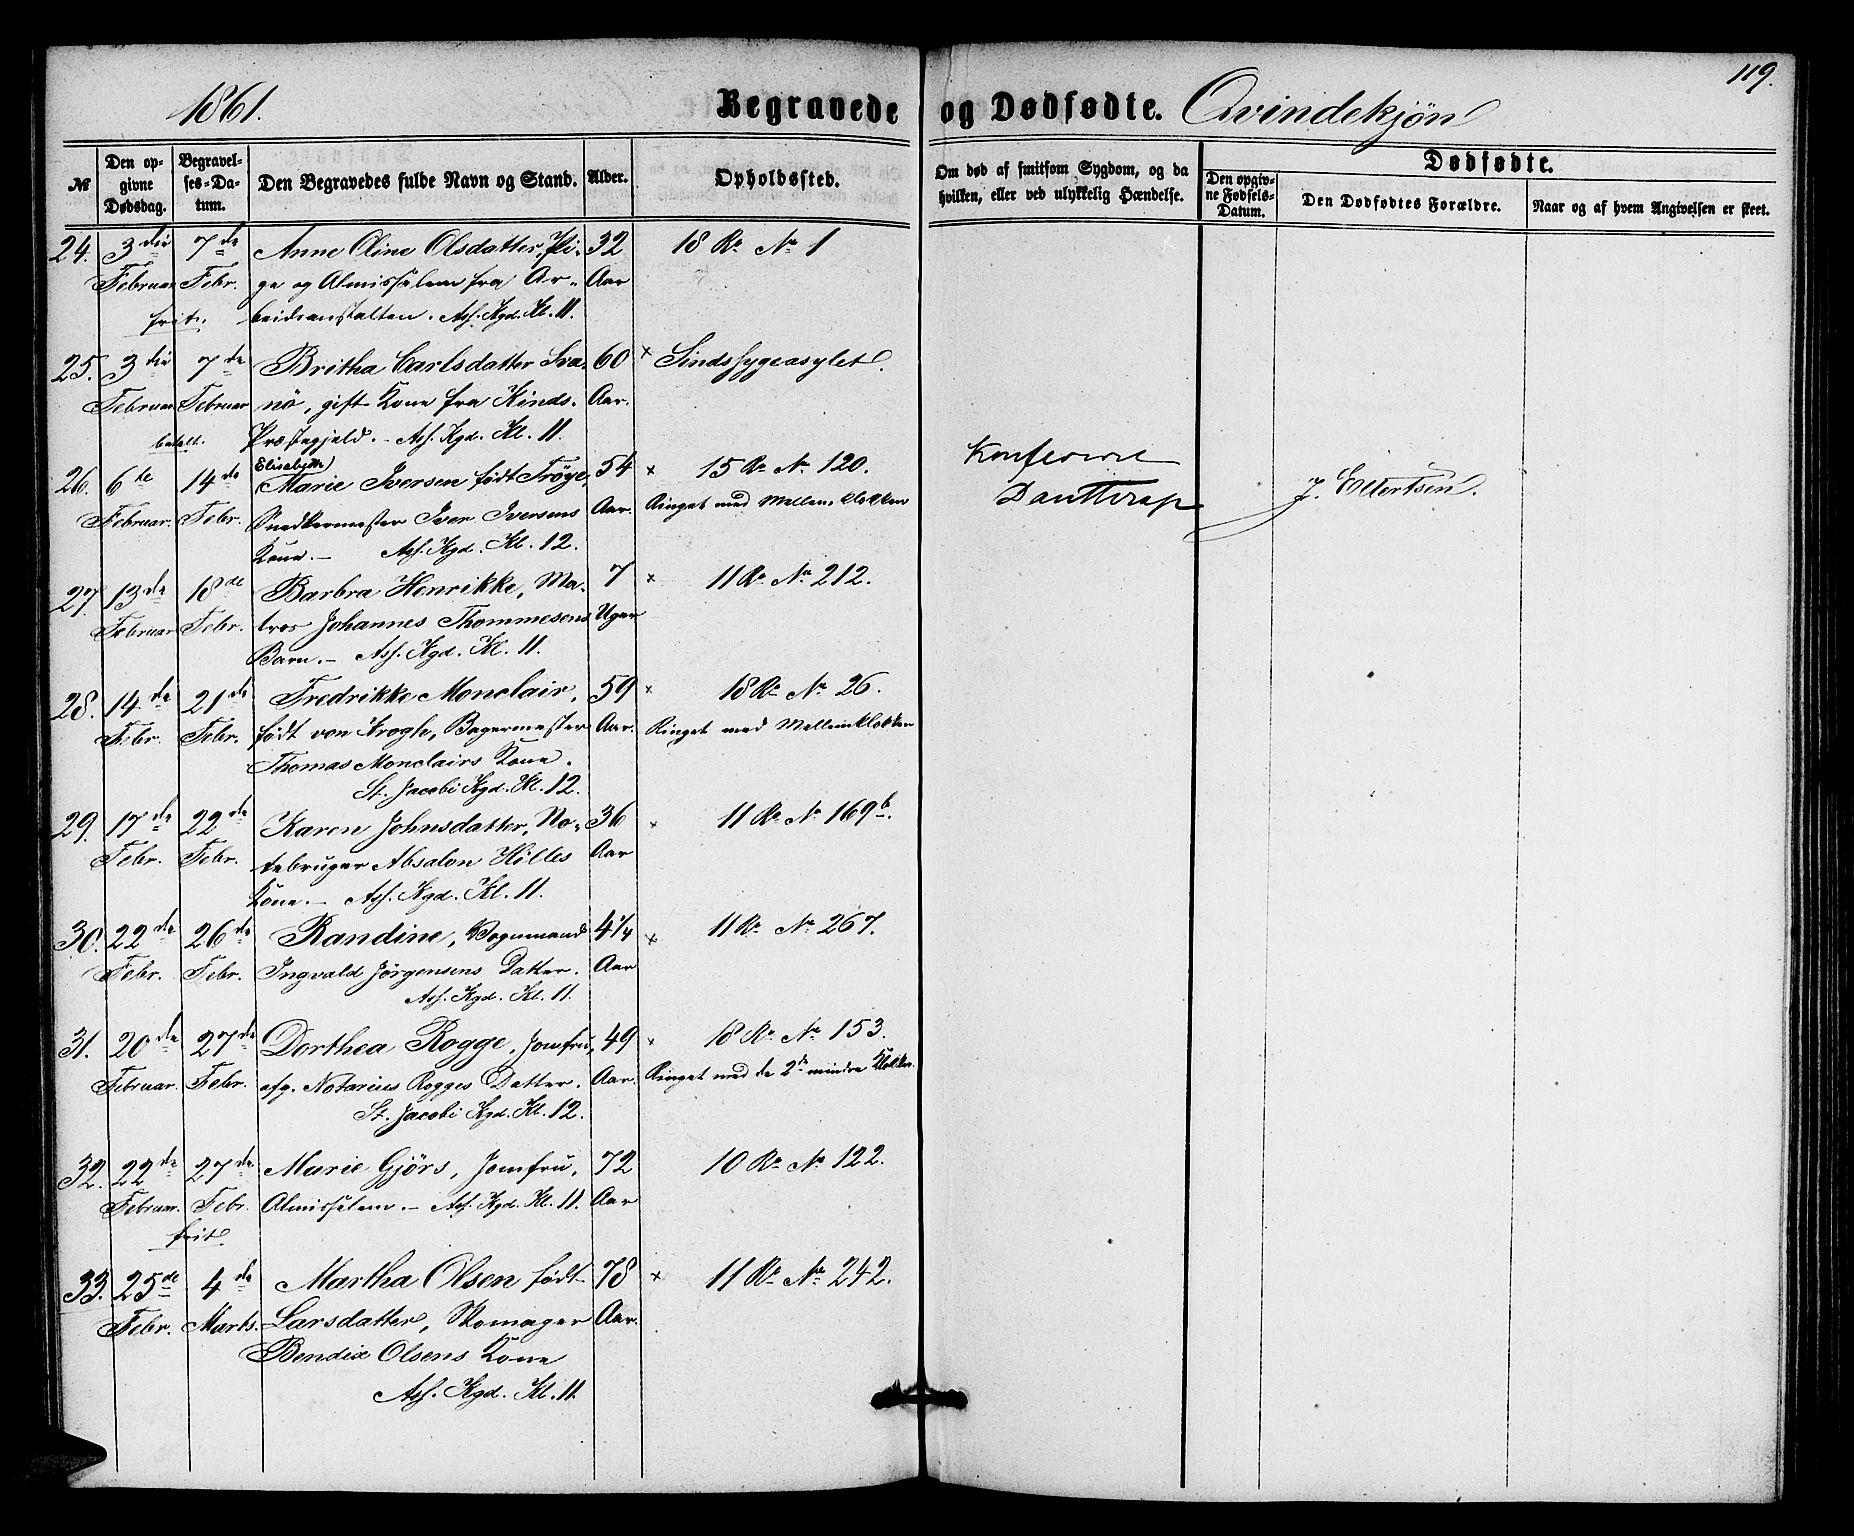 1861.
Begravede og Dødfødte. Qvindekjøn
119.
№
Den opgivne Dødsdag.
Begravelses-Datum.
Den Begravedes fulde Navn og Stand.
Alder.
Opholdssted.
Om død af smitsom Sygdom, og da hvilken, eller ved ulykkelig Hændelse.
Dødfødte.
Den opgivne Fødsels-Datum.
Den Dødfødtes Forældre.
Naar og af hvem Angivelsen er skeet.
24. 3die 7de Anne Oline Olsdatter, Pi- 32 18 R. No 1
Februar Febr. ge og Almisselem fra Ar- Aar
frit. beidsanstalten. Ass. Kgd. Kl. 11.
25. 3die 7de Britha Carlsdatter Sva- 60 × Sindssygeasylet.
Februar Februar nö, gift Kone fra Kinds- Aar.
betalt. Præstegjeld. - Ass. Kgd. Kl. 11.
Elisabeth
26. 6te 14de Marie Iversen født Trøye, 54 × 15 R. No 120. Konfereret
Februar. Febr. Snedkermester Iver Iversens Aar. Ringet med Mellemklokken
Kone. - Ass. Kgd. Kl. 12.
27. 13de 18de Barbra Henrikke, Ma- 7 × 11 R. No 212.
Februar Febr. tros Johannes Thommesens Uger
Barn. - Ass. Kgd. Kl. 11.
28. 14de 21de Fredrikke Monclair, 59 × 18 R. No 26.
Febr. Febr. født von Krogh, Bagermester Aar. Ringet med Mellemklokken
Thomas Monclairs Kone.
St. Jacobi Kgd. Kl. 12.
29. 17de 22de Karen Johnsdatter, No- 36 × 11 R. No 169b.
Febr. Febr. tebruger Absalon Hilles Aar
Kone. - Ass. Kgd. Kl. 11.
30. 22de 26de Randine, Vognmand 4¼ × 11 R. No 267.
Febr. Febr. Ingvald Jørgensens Datter. Aar
Ass. Kgd. Kl. 11.
31. 20de 27de Dorthea Rogge, Jomfru, 49 × 18 R. No 153.
Februar. Febr. afg. Notarius Rogges Datter. Aar. Ringet med de 2de mindre Klokker.
St. Jacobi Kgd. Kl. 12.
32. 22de 27de Marie Gjørs, Jomfru, 72 10 R. No 122.
Februar. Febr. Almisselem. - Ass. Kgd. Kl. 11. Aar
frit
33. 25de 4de Martha Olsen født 78 × 11 R. No 242.
Febr. Marts. Larsdatter, Skomager Aar.
Bendix Olsens Kone
Ass. Kgd. Kl. 11.